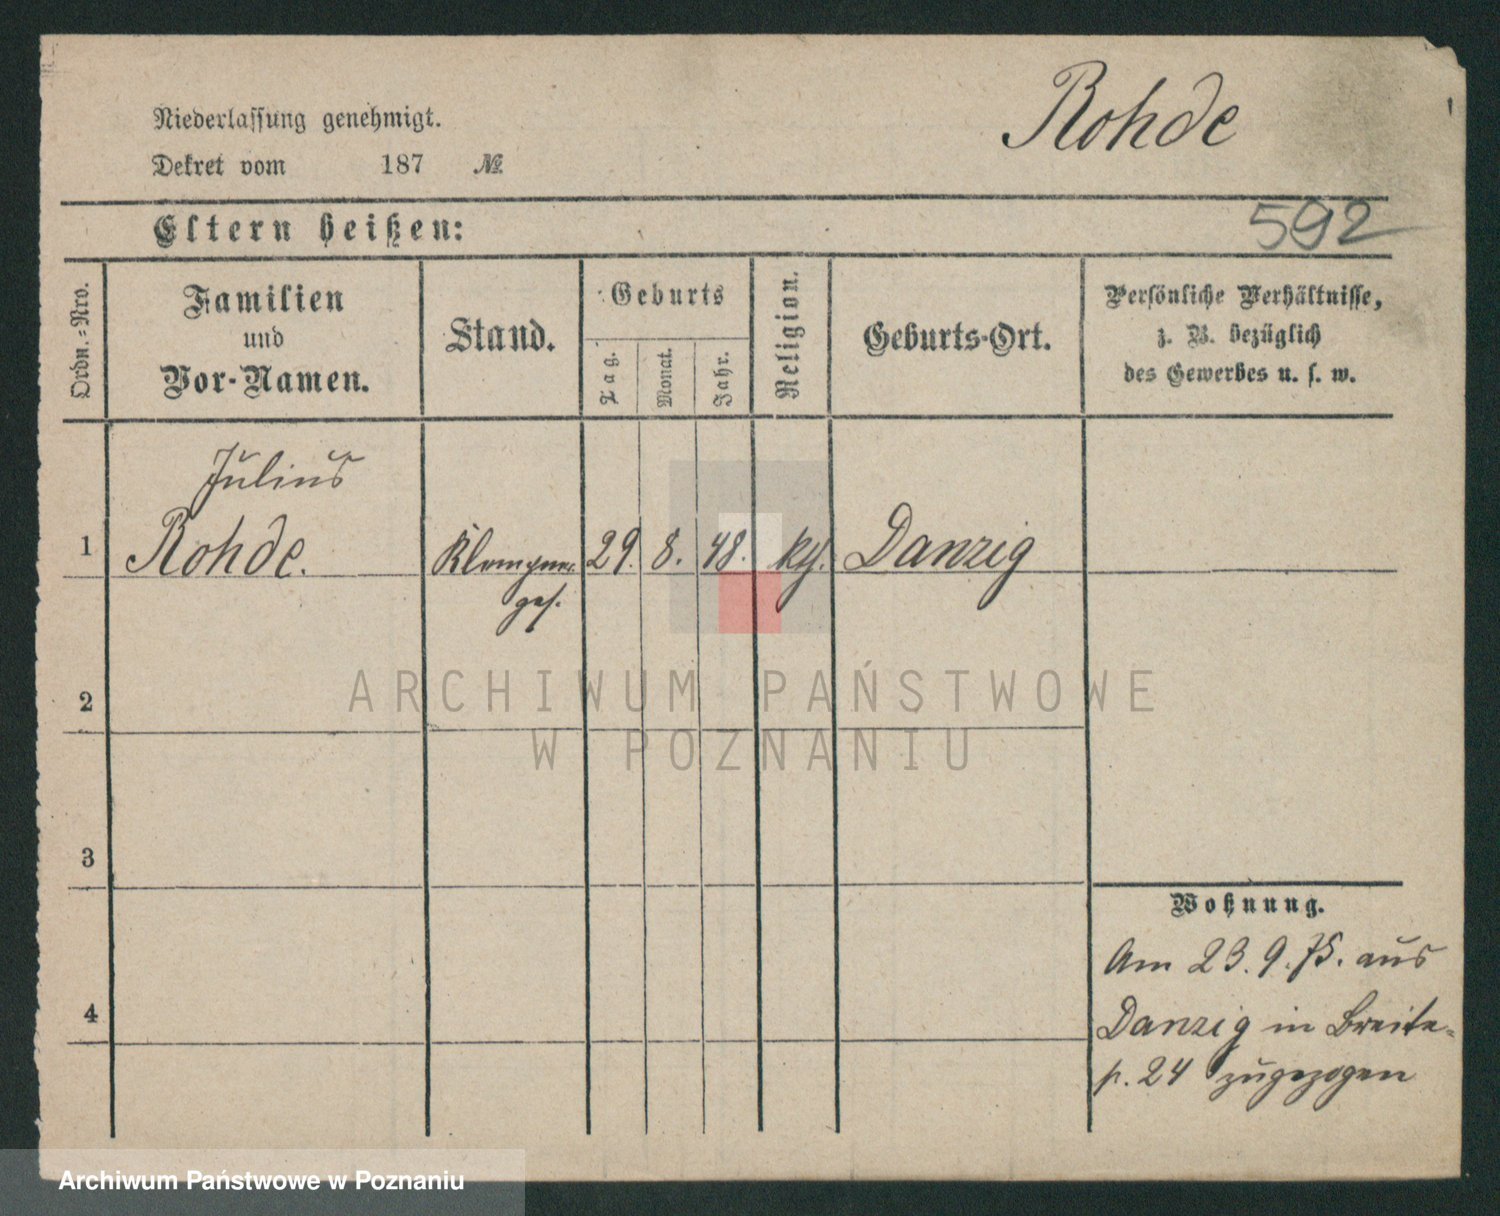 Rohde
Niederlassung genehmigt.
Dekret vom 187 №
592
Eltern heißen:
Ordn.-Nro.
Familien
und
Vor-Namen.
Stand.
Geburts
Tag.
Monat.
Jahr.
Religion.
Geburts-Ort.
Persönliche Verhältnisse,
z. B. bezüglich
des Gewerbes u. s. w.
Julius
1 Rohde. Klempner 29. 8. 48. Danzig
ges.
2
3
4
Wohnung.
Am 23. 9. 75. aus
Danzig in Breite-
24 zugezogen
ARCHIWUM PAŃSTWOWE
W POZNANIU
Archiwum Państwowe w Poznaniu